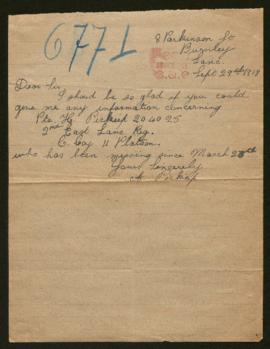 6771
8 Parkinson St
Burnley
Lanc.
Sept 29th 1918
Dear Sir
I should be so glad if you could
give me any information concerning
Pte Hy Pickup 204025
2nd East Lanc Reg.
C. Coy 11 Platoon.
who has been missing since March
Yours Sincerely
A Pickup